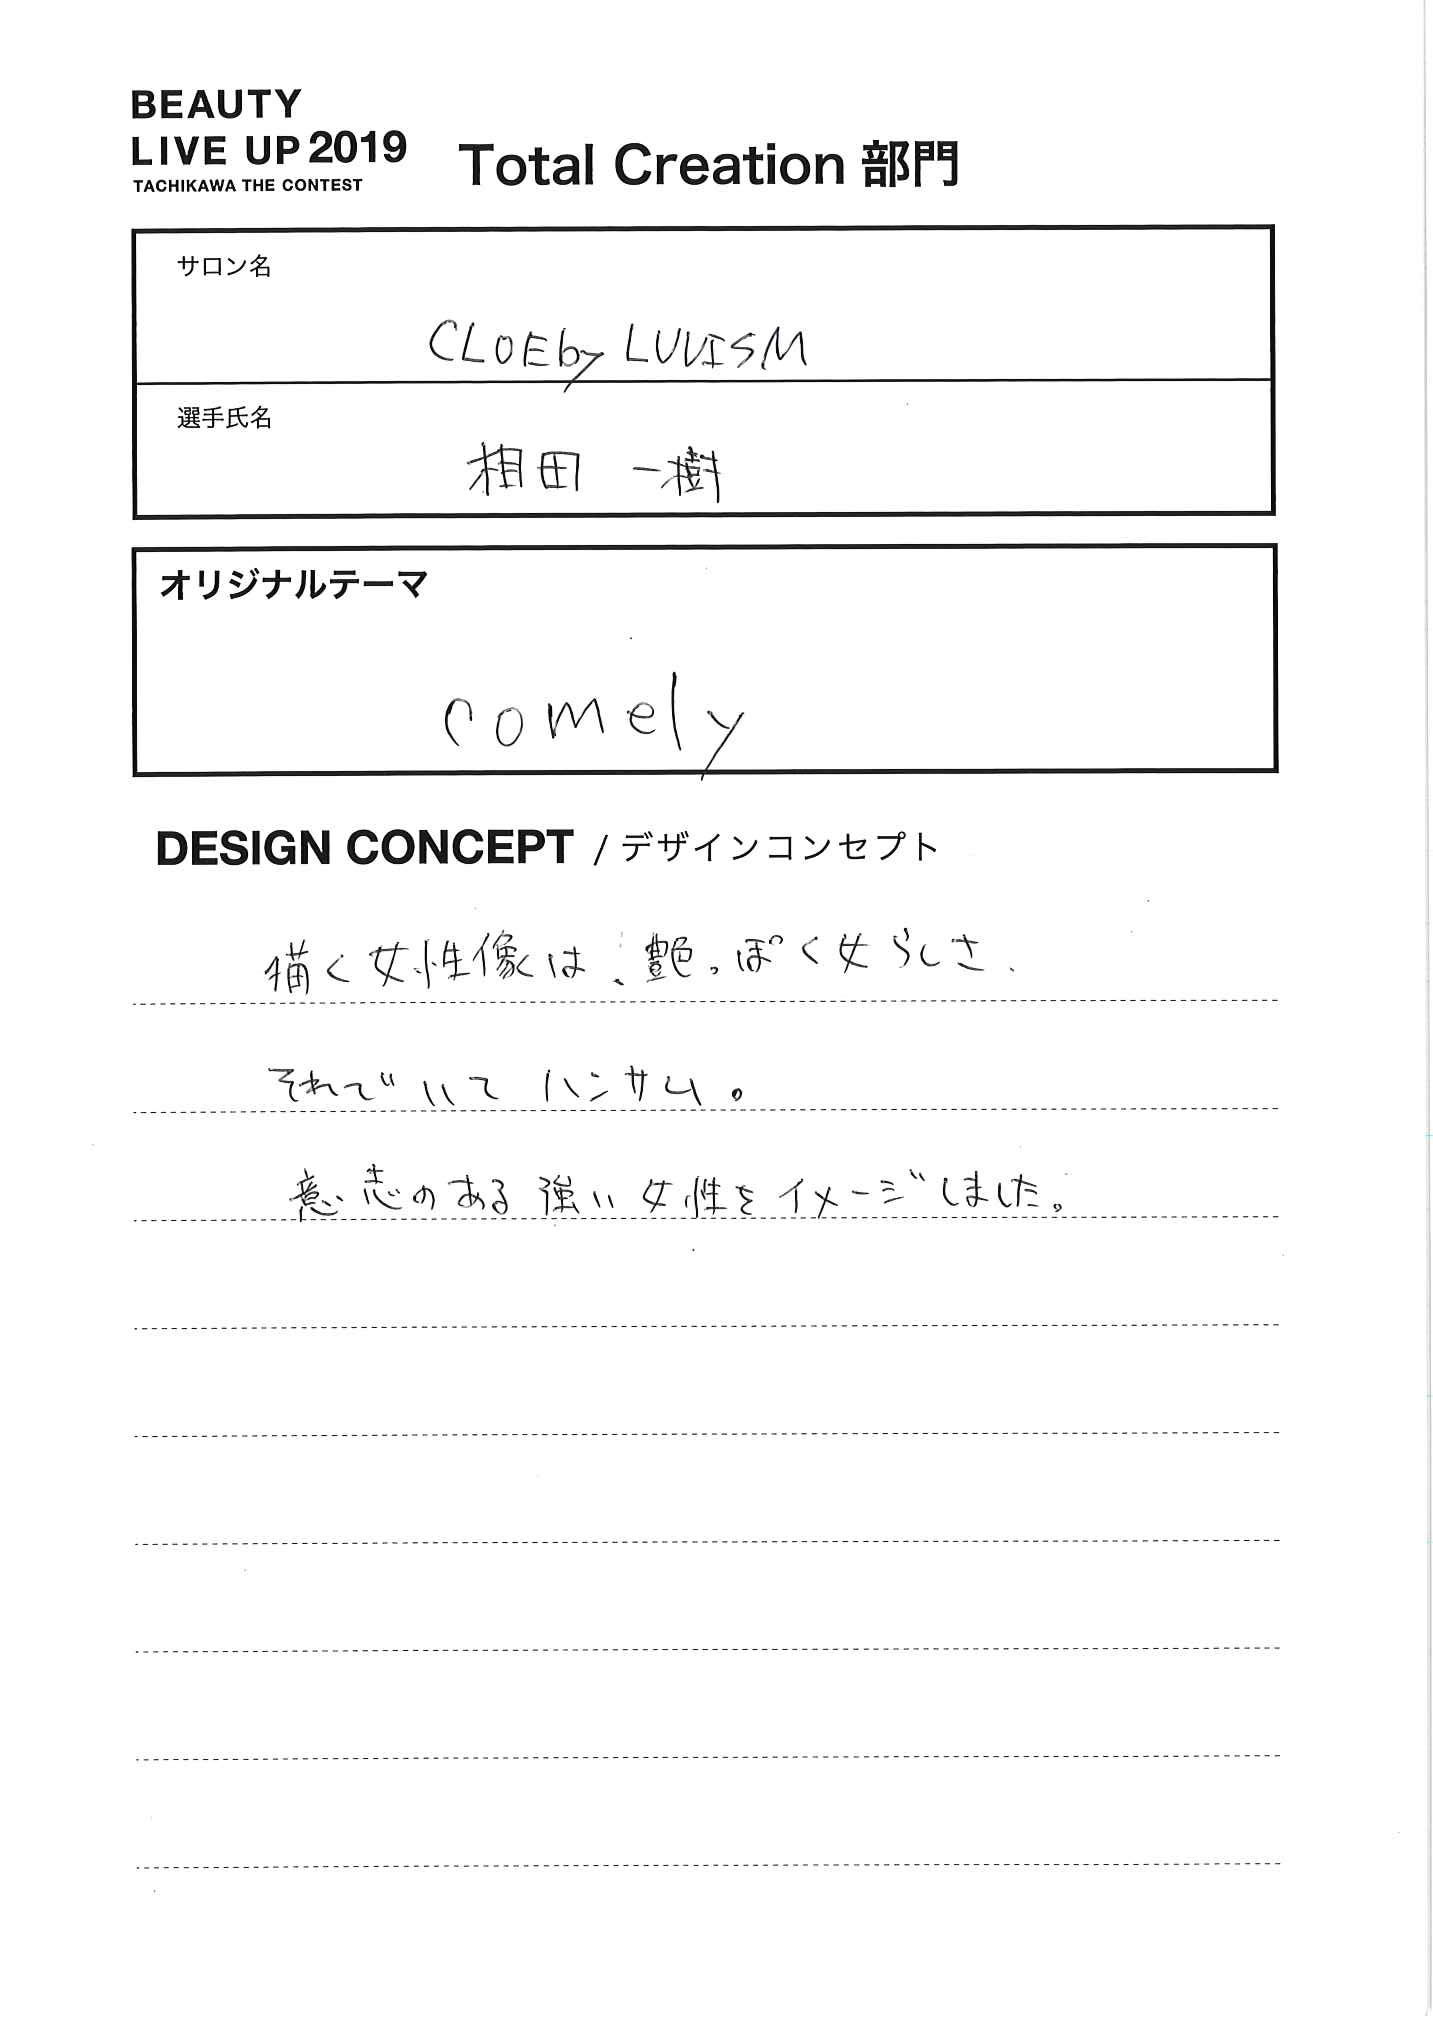 BEAUTY
LIVE UP 2019
TACHIKAWA THE CONTEST
Total Creation 部門
サロン名
CLOEby LUVISM
選手氏名
相田 一樹
オリジナルテーマ
comely
DESIGN CONCEPT / デザインコンセプト
描く女性像は、艶っぽく女らしさ、
それでいてハンサム。
意志のある強い女性をイメージしました。